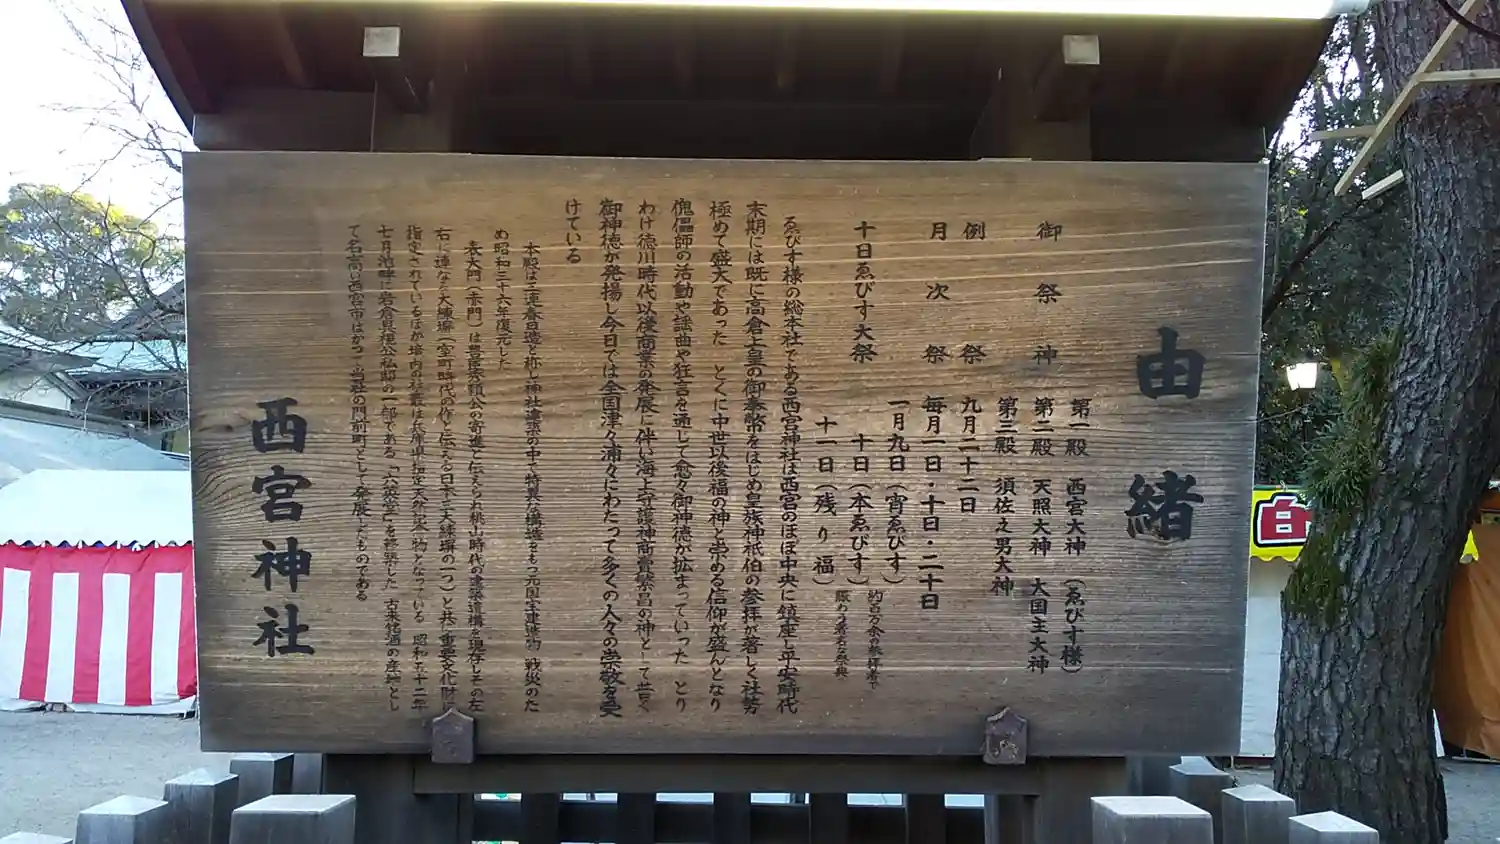 由緒
御祭神 第一殿 西宮大神(ゑびす様)
第二殿 天照大神 大国主大神
第三殿 須佐之男大神
例祭 九月二十二日
月次祭 毎月一日・十日・二十日
十日ゑびす大祭 一月九日(宵ゑびす)
十日(本ゑびす) 約百万余の参拝者で
賑わう著名な祭典
十一日(残り福)
ゑびす様の総本社である西宮神社は西宮のほぼ中央に鎮座し平安時代
末期には既に高倉上皇の御奉幣をはじめ皇族神祇伯の参拝が著しく社勢
極めて盛大であった とくに中世以後福の神と崇める信仰が盛んとなり
傀儡師の活動や謡曲や狂言を通して愈々御神徳が拡まっていった とり
わけ徳川時代以後商業の発展に伴い海上守護神商売繁昌の神として普く
御神徳が発揚し今日では全国津々浦々にわたって多くの人々の崇敬を受
けている
本殿は三連春日造と称し神社建築の中で特異な構造をもつ元国宝建造物 戦災のた
め昭和三十六年復元した
表大門(赤門)は豊臣秀頼公の寄進と伝えられ桃山時代の建築遺構を現存しその左
右に連なる大練塀(室町時代の作と伝える日本三大練塀の一つ)と共に重要文化財に
指定されているほか境内の社叢は兵庫県指定天然記念物となっている 昭和五十二年
七月池畔に岩倉具視公私邸の一部である「六英堂」を移築した 古来銘酒の産地とし
て名高い西宮市はかつて当社の門前町として発展したものである
西宮神社